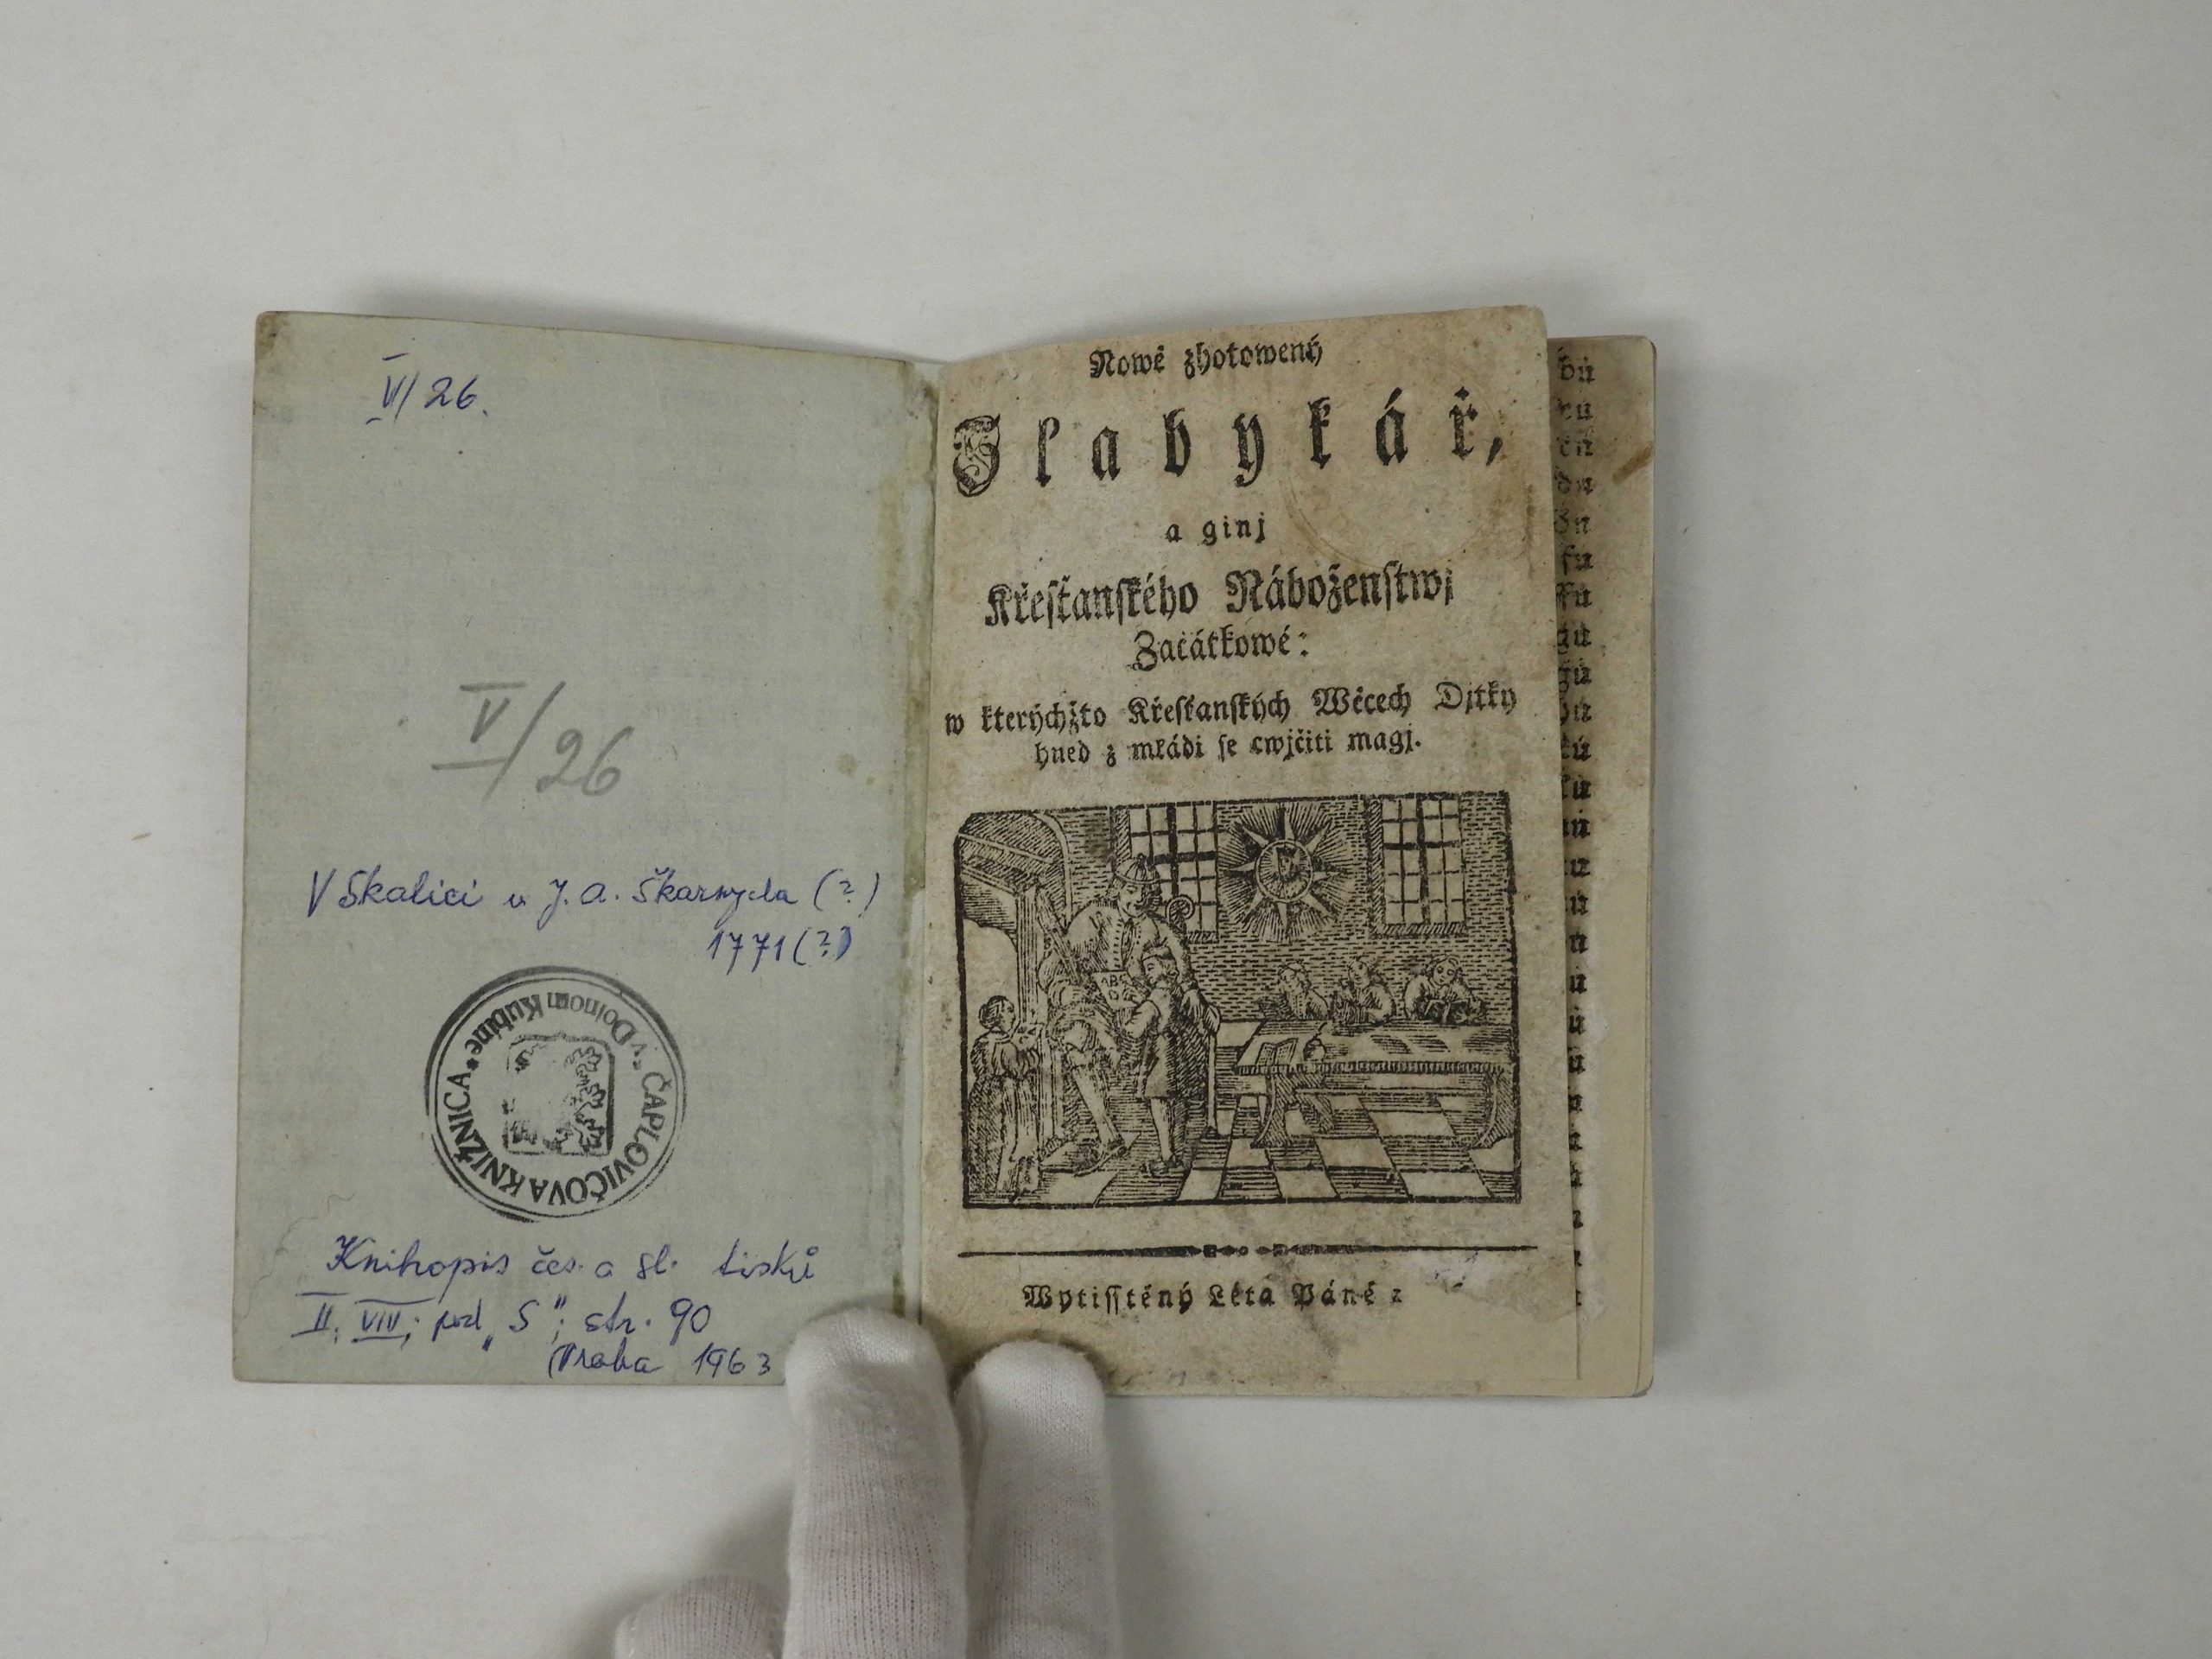 V/26.
V/26
V Skalici u J. A. Škarnycla (?)
1771 (?)
ČAPLOVIČOVA KNIŽNICA • v Dolnom Kubíne •
Knihopis čes. a sl. tisků
II, VIII, pod „S"; str. 90
Praha 1963
Nowě zhotowený
Slabykář,
a ginj
Křesťanského Náboženstwj
Začátkowé:
w kterýchžto Křesťanských Wěcech Djtky
hned z mládi se cwjčiti magj.
ABC
Wytisstěný Léta Páně :